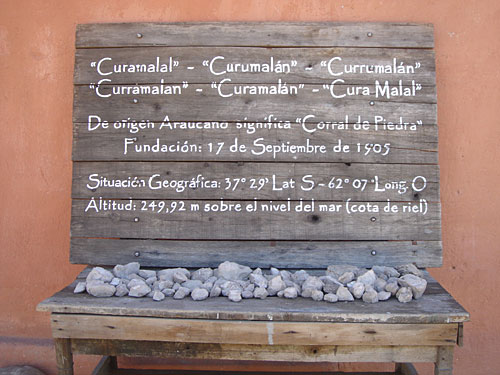 “Curamalal” - “Curumalán” - “Currumalán”
“Curramalan” - “Curamalán” - “Cura Malal”
De origen Araucano significa “Corral de Piedra”
Fundación: 17 de Septiembre de 1905
Situación Geográfica: 37° 29' Lat S - 62° 07 'Long. O
Altitud: 249,92 m sobre el nivel del mar (cota de riel)